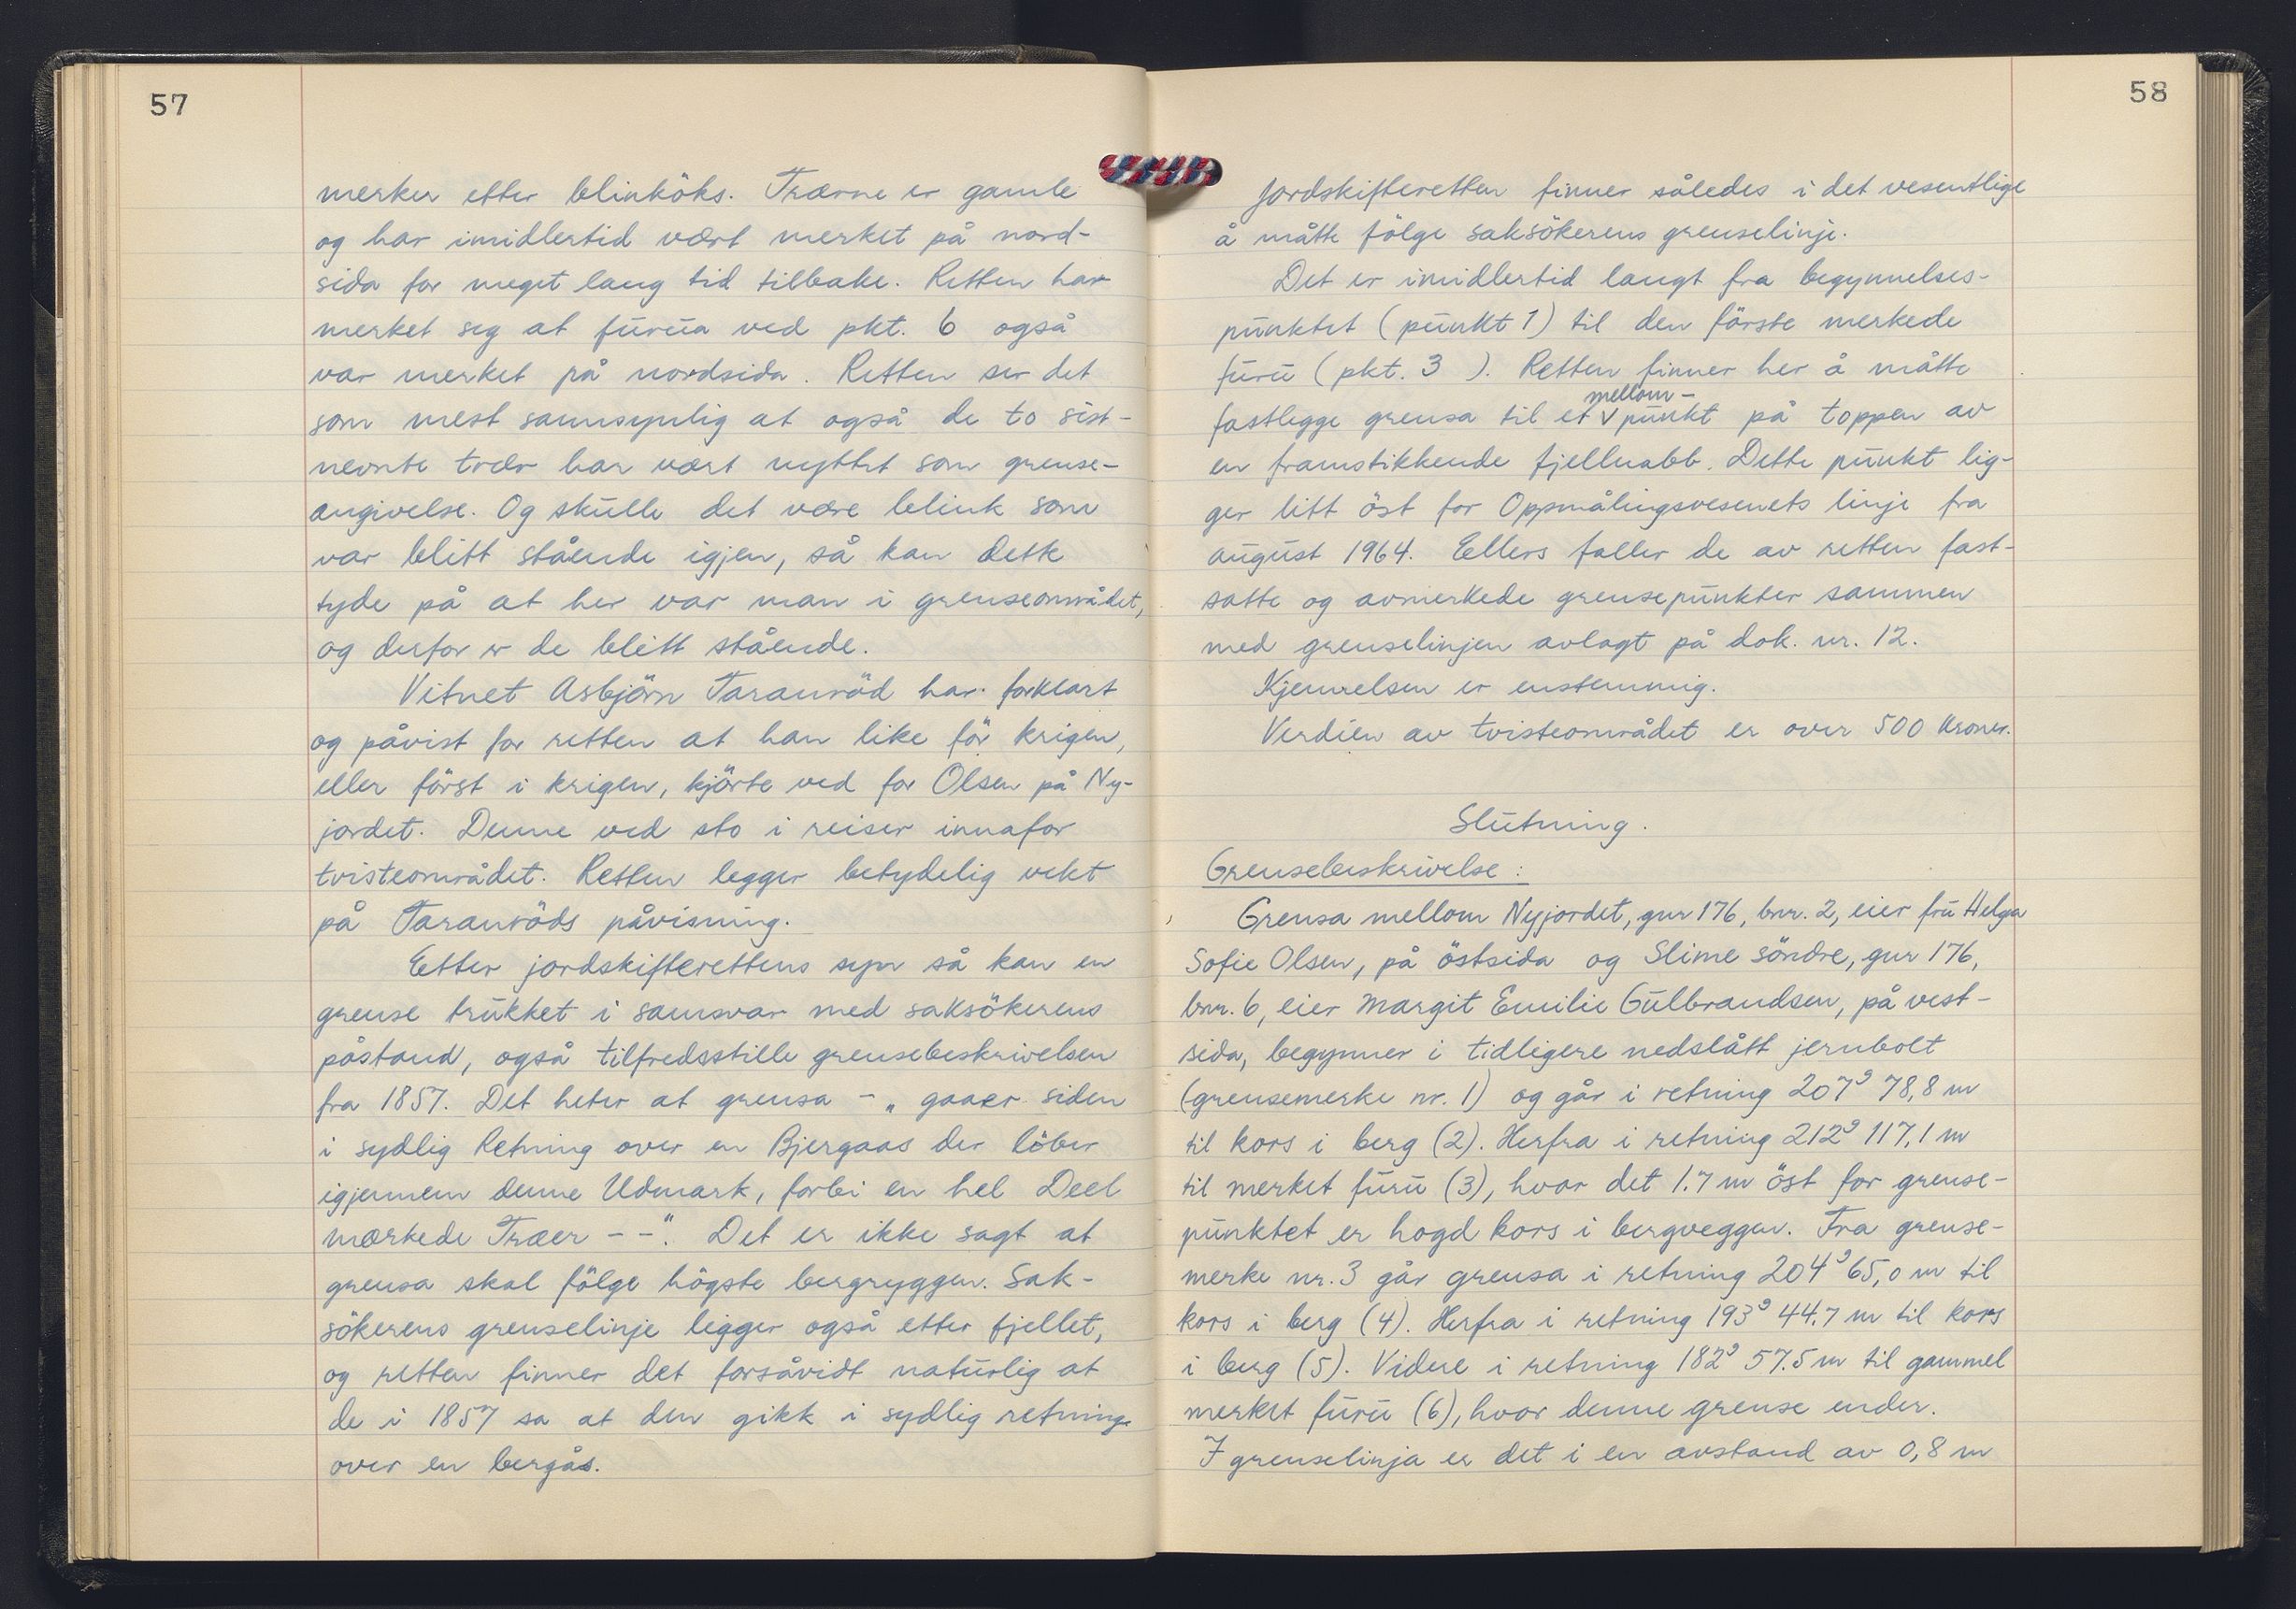 57
merker etter blinköks. Trærne er gamle
og har imidlertid vært merket på nord-
sida for meget lang tid tilbake. Retten har
merket seg at furua ved pkt. 6 også
var merket på nordsida. Retten ser det
som mest sannsynlig at også de to sist-
nevnte trær har vært nyttet som grense-
angivelse. Og skulle det være blink som
var blitt stående igjen, så kan dette
tyde på at her var man i grenseområdet,
og derfor er de blitt stående.
Vitnet Asbjörn Taranröd har forklart
og påvist for retten at han like för krigen,
eller först i krigen, kjörte ved for Olsen på Ny-
jordet. Denne ved sto i reiser innafor
tvisteområdet. Retten legger betydelig vekt
på Taranröds påvisning.
Etter jordskifterettens syn så kan en
grense trukket i samsvar med saksökerens
påstand, også tilfredsstille grensebeskrivelsen
fra 1857. Det heter at grensa - „ gaaer siden
i sydlig Retning over en Bjergaas der löber
igjennem denne Udmark, forbi en hel Deel
mærkede Træer - -". Det er ikke sagt at
grensa skal fölge högste bergryggen. Sak-
sökerens grenselinje ligger også etter fjellet,
og retten finner det forsåvidt naturlig at
de i 1857 sa at den gikk i sydlig retning
over en bergås.
58
Jordskifteretten finner således i det vesentlige
å måtte fölge saksökerens grenselinje.
Det er imidlertid langt fra begynnelses-
punktet (punkt 1) til den förste merkede
furu (pkt. 3 ). Retten finner her å måtte
mellom-
fastlegge grensa til et v punkt på toppen av
en framstikkende fjellnabb. Dette punkt lig-
ger litt öst for Oppmålingsvesenets linje fra
august 1964. Ellers faller de av retten fast-
satte og avmerkede grensepunkter sammen
med grenselinjen avlagt på dok. nr. 12.
Kjennelsen er enstemmig.
Verdien av tvisteområdet er over 500 kroner.
Slutning.
Grensebeskrivelse :
Grensa mellom Nyjordet, gnr 176, bnr. 2, eier fru Helga
Sofie Olsen, på östsida og Slime söndre, gnr 176,
bnr. 6, eier Margit Emilie Gulbrandsen, på vest-
sida, begynner i tidligere nedslått jernbolt
(grensemerke nr. 1) og går i retning 207ᵍ 78,8 m
til kors i berg (2). Herfra i retning 212ᵍ 117,1 m
til merket furu (3), hvor det 1.7 m öst for grense-
punktet er hogd kors i bergveggen. Fra grense-
merke nr. 3 går grensa i retning 204ᵍ 65,0 m til
kors i berg (4). Herfra i retning 193ᵍ 44.7 m til kors
i berg (5). Videre i retning 182ᵍ 57.5 m til gammel
merket furu (6), hvor denne grense ender.
I grenselinja er det i en avstand av 0,8 m